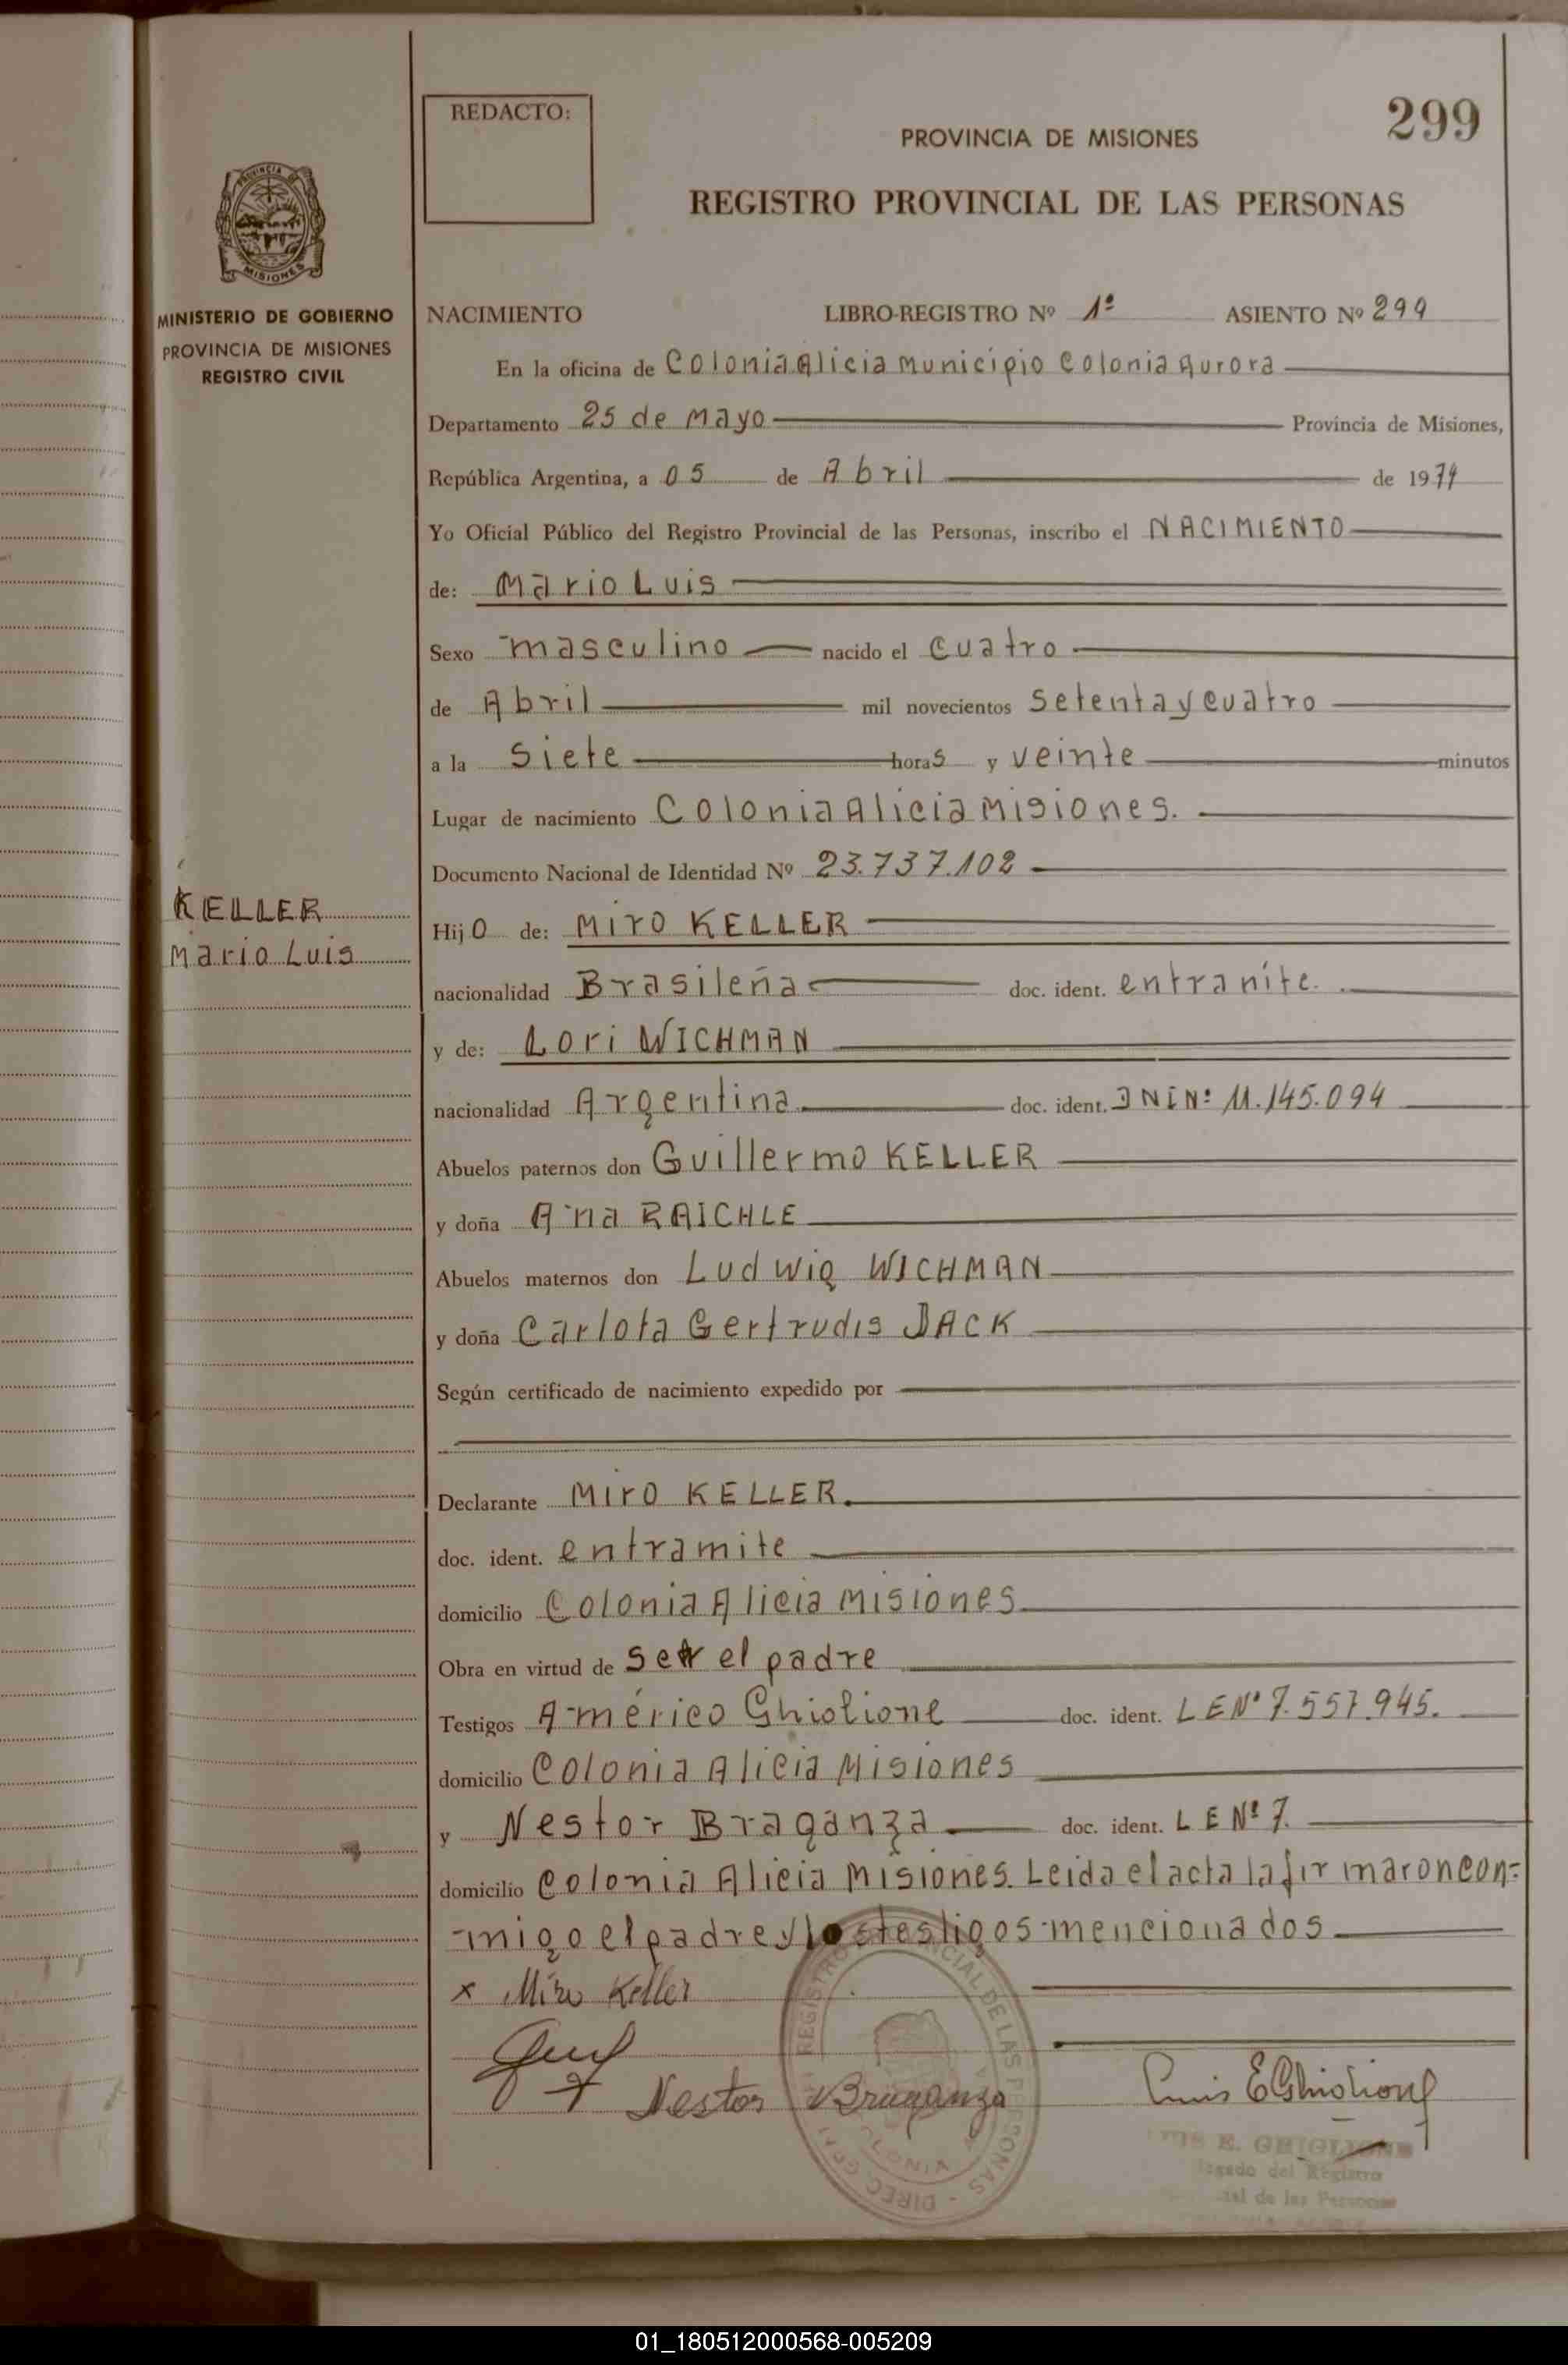 299
REDACTO:
PROVINCIA DE MISIONES
REGISTRO PROVINCIAL DE LAS PERSONAS
PROVINCIA DE
MISIONES
MINISTERIO DE GOBIERNO
PROVINCIA DE MISIONES
REGISTRO CIVIL
NACIMIENTO LIBRO-REGISTRO Nº 1º ASIENTO Nº 299
En la oficina de Colonia Alicia Municipio Colonia Aurora
Departamento 25 de Mayo Provincia de Misiones,
República Argentina, a 05 de Abril de 1974
Yo Oficial Público del Registro Provincial de las Personas, inscribo el NACIMIENTO
de: Mario Luis
Sexo masculino nacido el cuatro
de Abril mil novecientos setenta y cuatro
a la siete horas y veinte minutos
Lugar de nacimiento Colonia Alicia Misiones.
Documento Nacional de Identidad Nº 23.737.102
KELLER
Mario Luis
Hijo de: Miro KELLER
nacionalidad Brasileña doc. ident. entramite.
y de: Lori WICHMAN
nacionalidad Argentina doc. ident. DNI Nº 11.145.094
Abuelos paternos don Guillermo KELLER
y doña Ana RAICHLE
Abuelos maternos don Ludwig WICHMAN
y doña Carlota Gertrudis JACK
Según certificado de nacimiento expedido por
Declarante Miro KELLER.
doc. ident. entramite
domicilio Colonia Alicia Misiones
Obra en virtud de ser el padre
Testigos Américo Ghiolione doc. ident. LE Nº 7.557.945.
domicilio Colonia Alicia Misiones
y Nestor Braganza doc. ident. LE Nº 7.
domicilio Colonia Alicia Misiones. Leida el acta la firmaron con-
migo el padre y los testigos mencionados
x Miro Keller
Nestor Braganza
Luis E Ghiolione
LUIS E. GHIGLIONE
del Registro
de las Personas
REGISTRO PROVINCIAL DE LAS PERSONAS - DIREC. GRAL
01_180512000568-005209